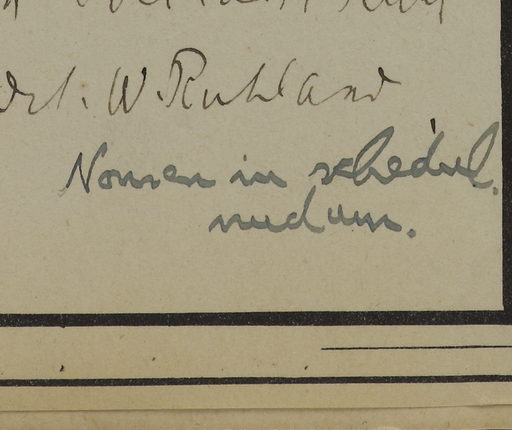 det. W. Ruhland
Nomen in schedul.
nudum.